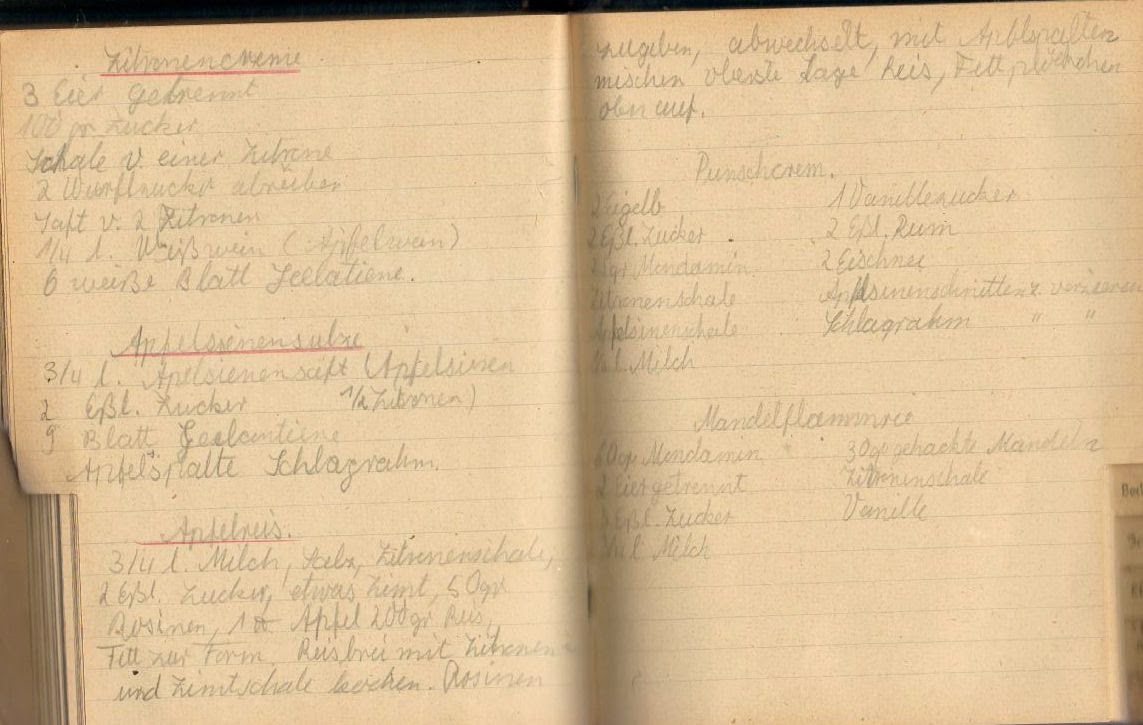 Zitronencreme
3 Eier getrennt
100 gr Zucker
Schale v. einer Zitrone
2 Würflzucker abreiben
Saft v. 2 Zitronen
1/4 l. Weißwein (Apfelwein)
6 weiße Blatt Geelatiene.
Apfelsienensulze
3/4 l. Apelsienensaft (Apfelsienen
2 Eßl. Zucker 1/2 Zitronen)
9 Blatt Geelantiene
Apfelspalte Schlagrahm.
Apfelreis.
3/4 l. Milch, Salz, Zitronenschale,
2 Eßl. Zucker, etwas Zimt, 50gr
Rosinen, 1 Apfel 200gr Reis,
Fett zur Form. Reisbrei mit Zitronen
und Zimtschale kochen. Rosinen
zugeben, abwechselt, mit Apfelspalten
mischen oberste Lage Reis, Fettplöckchen
oben auf.
Punschcrem.
2 Eigelb 1 Vanillezucker
2 Eßl. Zucker 2 Eßl. Rum
gr Mondamin 2 Eischnee
Zitronenschale Apfelsinenschnitten z. verzieren
Apfelsinenschale Schlagrahm " "
l. Milch
Mandelflammrie
60gr Mondamin 30gr gehackte Mandeln
2 Eier getrennt Zitronenschale
Eßl. Zucker Vanille
l. Milch